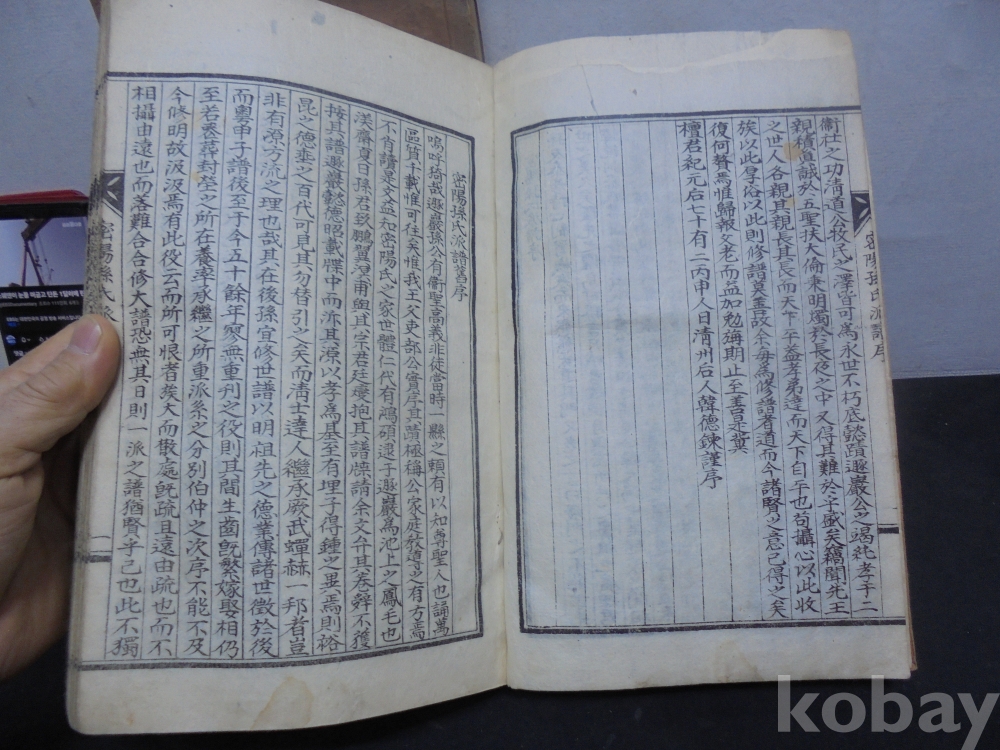 密陽孫氏派譜序
衛社之功淸道公牧民之澤皆可爲永世不朽底懿蹟遯巖公之竭純孝于二
親積眞誠於五聖扶大倫秉明燭於長夜之中又得其難於乎盛矣竊聞先王
之世人各親其親長其長而天下平益孝弟達而天下自平也苟攝心以此收
族以此厚俗以此則修譜莫善設余每爲修譜者道而今諸賢之意已得之矣
復何贅焉惟歸報父老而益加勉海期止至善是冀
檀君紀元后七十有二丙申人日淸州后人韓德鍊謹序
密陽孫氏派譜舊序
嗚呼猗哉遯巖孫公有衛聖高義非徒當時一縣之賴有以如尊聖人也誦萬
區質千載惟可徃矣惟我王父吏部公實序其蹟極稱公家庭敎導之有方焉
不肖讀是文益知密陽氏之家世體仁代有鴻碩還子遯巖爲池上之鳳毛也
渼齋夏日孫君玖鵬翼運甫與其宗君廷燮抱其譜牒請余文弁其卷辭不獲
按其譜遯巖懿德昭載牒中而泝其源以孝爲基至有埋子得鍾之異焉則裕
昆之德垂之百代可見其勿替引之矣而淸士達人繼承厥武蟬赫一邦者豈
非有源方流之理也哉其在後孫宜修世譜以明祖先之德業傳諸世徵於後
而粤甲子譜後至于今五十餘年廖無重刊之役則其間生齒旣繁嫁娶相仍
至若墓葬封塋之所在養率承繼之所重派系之分別伯仲之次序不能不及
今修明故汲汲焉有此役云而所可恨者族大而散處旣疏且遠由疏也而不
相攝由遠也而落難合合修大譜恐無其日則一派之譜猶賢乎已也此不獨
密陽孫氏派
一
kobay